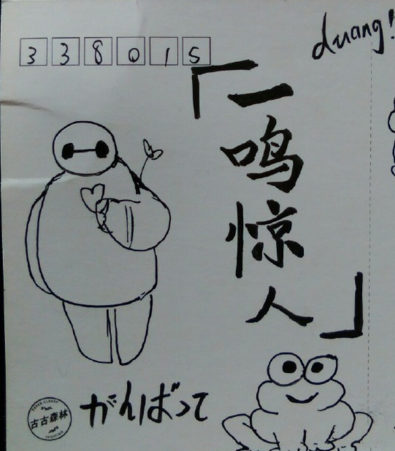 338015
duang!
「一鸣惊人」
古古森林
がんばって